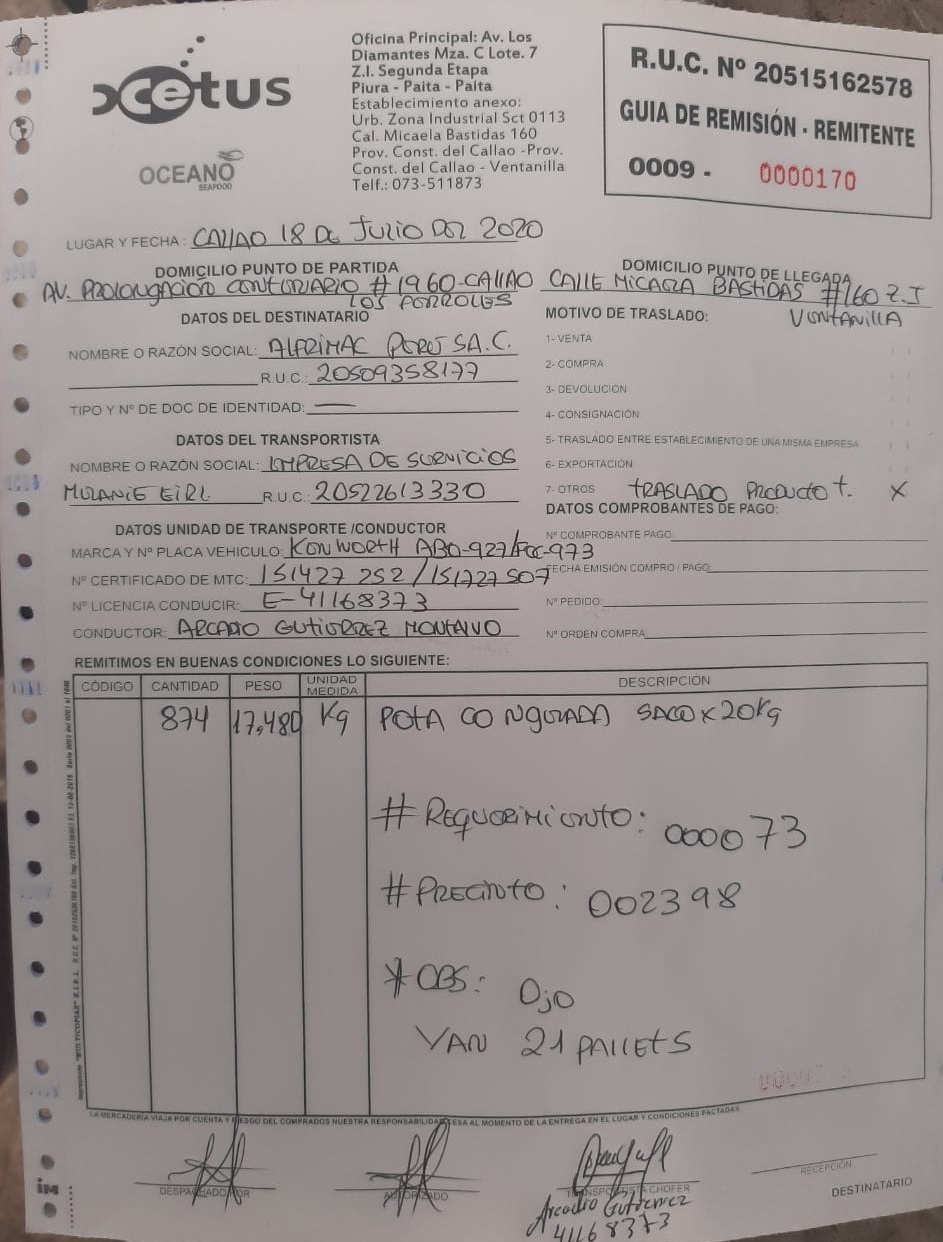 cetus
OCEANO
SEAFOOD
Oficina Principal: Av. Los
Diamantes Mza. C Lote. 7
Z.I. Segunda Etapa
Piura - Paita - Paita
Establecimiento anexo:
Urb. Zona Industrial Sct 0113
Cal. Micaela Bastidas 160
Prov. Const. del Callao -Prov.
Const. del Callao - Ventanilla
Telf.: 073-511873
R.U.C. Nº 20515162578
GUIA DE REMISIÓN - REMITENTE
0009 - 0000170
LUGAR Y FECHA: CALLAO 18 De Julio Del 2020
DOMICILIO PUNTO DE PARTIDA
AV. Prolongación Centenario #1960-CALLAO
LOS FERROLES
DOMICILIO PUNTO DE LLEGADA
CALLE MICAELA BASTIDAS #160 Z.I
VENTANILLA
DATOS DEL DESTINATARIO
NOMBRE O RAZÓN SOCIAL: ALFRIMAC PERU S.A.C.
R.U.C.: 20509358177
TIPO Y Nº DE DOC DE IDENTIDAD: —
MOTIVO DE TRASLADO:
1- VENTA
2- COMPRA
3- DEVOLUCIÓN
4- CONSIGNACIÓN
5- TRASLADO ENTRE ESTABLECIMIENTO DE UNA MISMA EMPRESA
6- EXPORTACIÓN
7- OTROS TRASLADO PRODUCTO T. X
DATOS DEL TRANSPORTISTA
NOMBRE O RAZÓN SOCIAL: EMPRESA DE SERVICIOS
MELANIE EIRL R.U.C. 20522613330
DATOS UNIDAD DE TRANSPORTE /CONDUCTOR
MARCA Y Nº PLACA VEHICULO: KENWORTH AB0-927/FCC-973
Nº CERTIFICADO DE MTC: 151427252/151727507
Nº LICENCIA CONDUCIR: E-41168373
CONDUCTOR: ARCADIO GUTIERREZ MONTALVO
DATOS COMPROBANTES DE PAGO:
Nº COMPROBANTE PAGO:
FECHA EMISIÓN COMPRO / PAGO:
Nº PEDIDO:
Nº ORDEN COMPRA
REMITIMOS EN BUENAS CONDICIONES LO SIGUIENTE:
CÓDIGO CANTIDAD PESO UNIDAD MEDIDA DESCRIPCIÓN
874 17,480 Kg POTA CONGELADA SACO x 20Kg
# Requerimiento: 000073
# PRECINTO: 002398
* OBS: Ojo
VAN 21 PALLETS
LA MERCADERÍA VIAJA POR CUENTA Y RIESGO DEL COMPRADOS NUESTRA RESPONSABILIDAD CESA AL MOMENTO DE LA ENTREGA EN EL LUGAR Y CONDICIONES PACTADAS
DESPACHADO POR
AUTORIZADO
TRANSPORTISTA CHOFER
Arcadio Gutierrez
41168373
RECEPCIÓN
DESTINATARIO